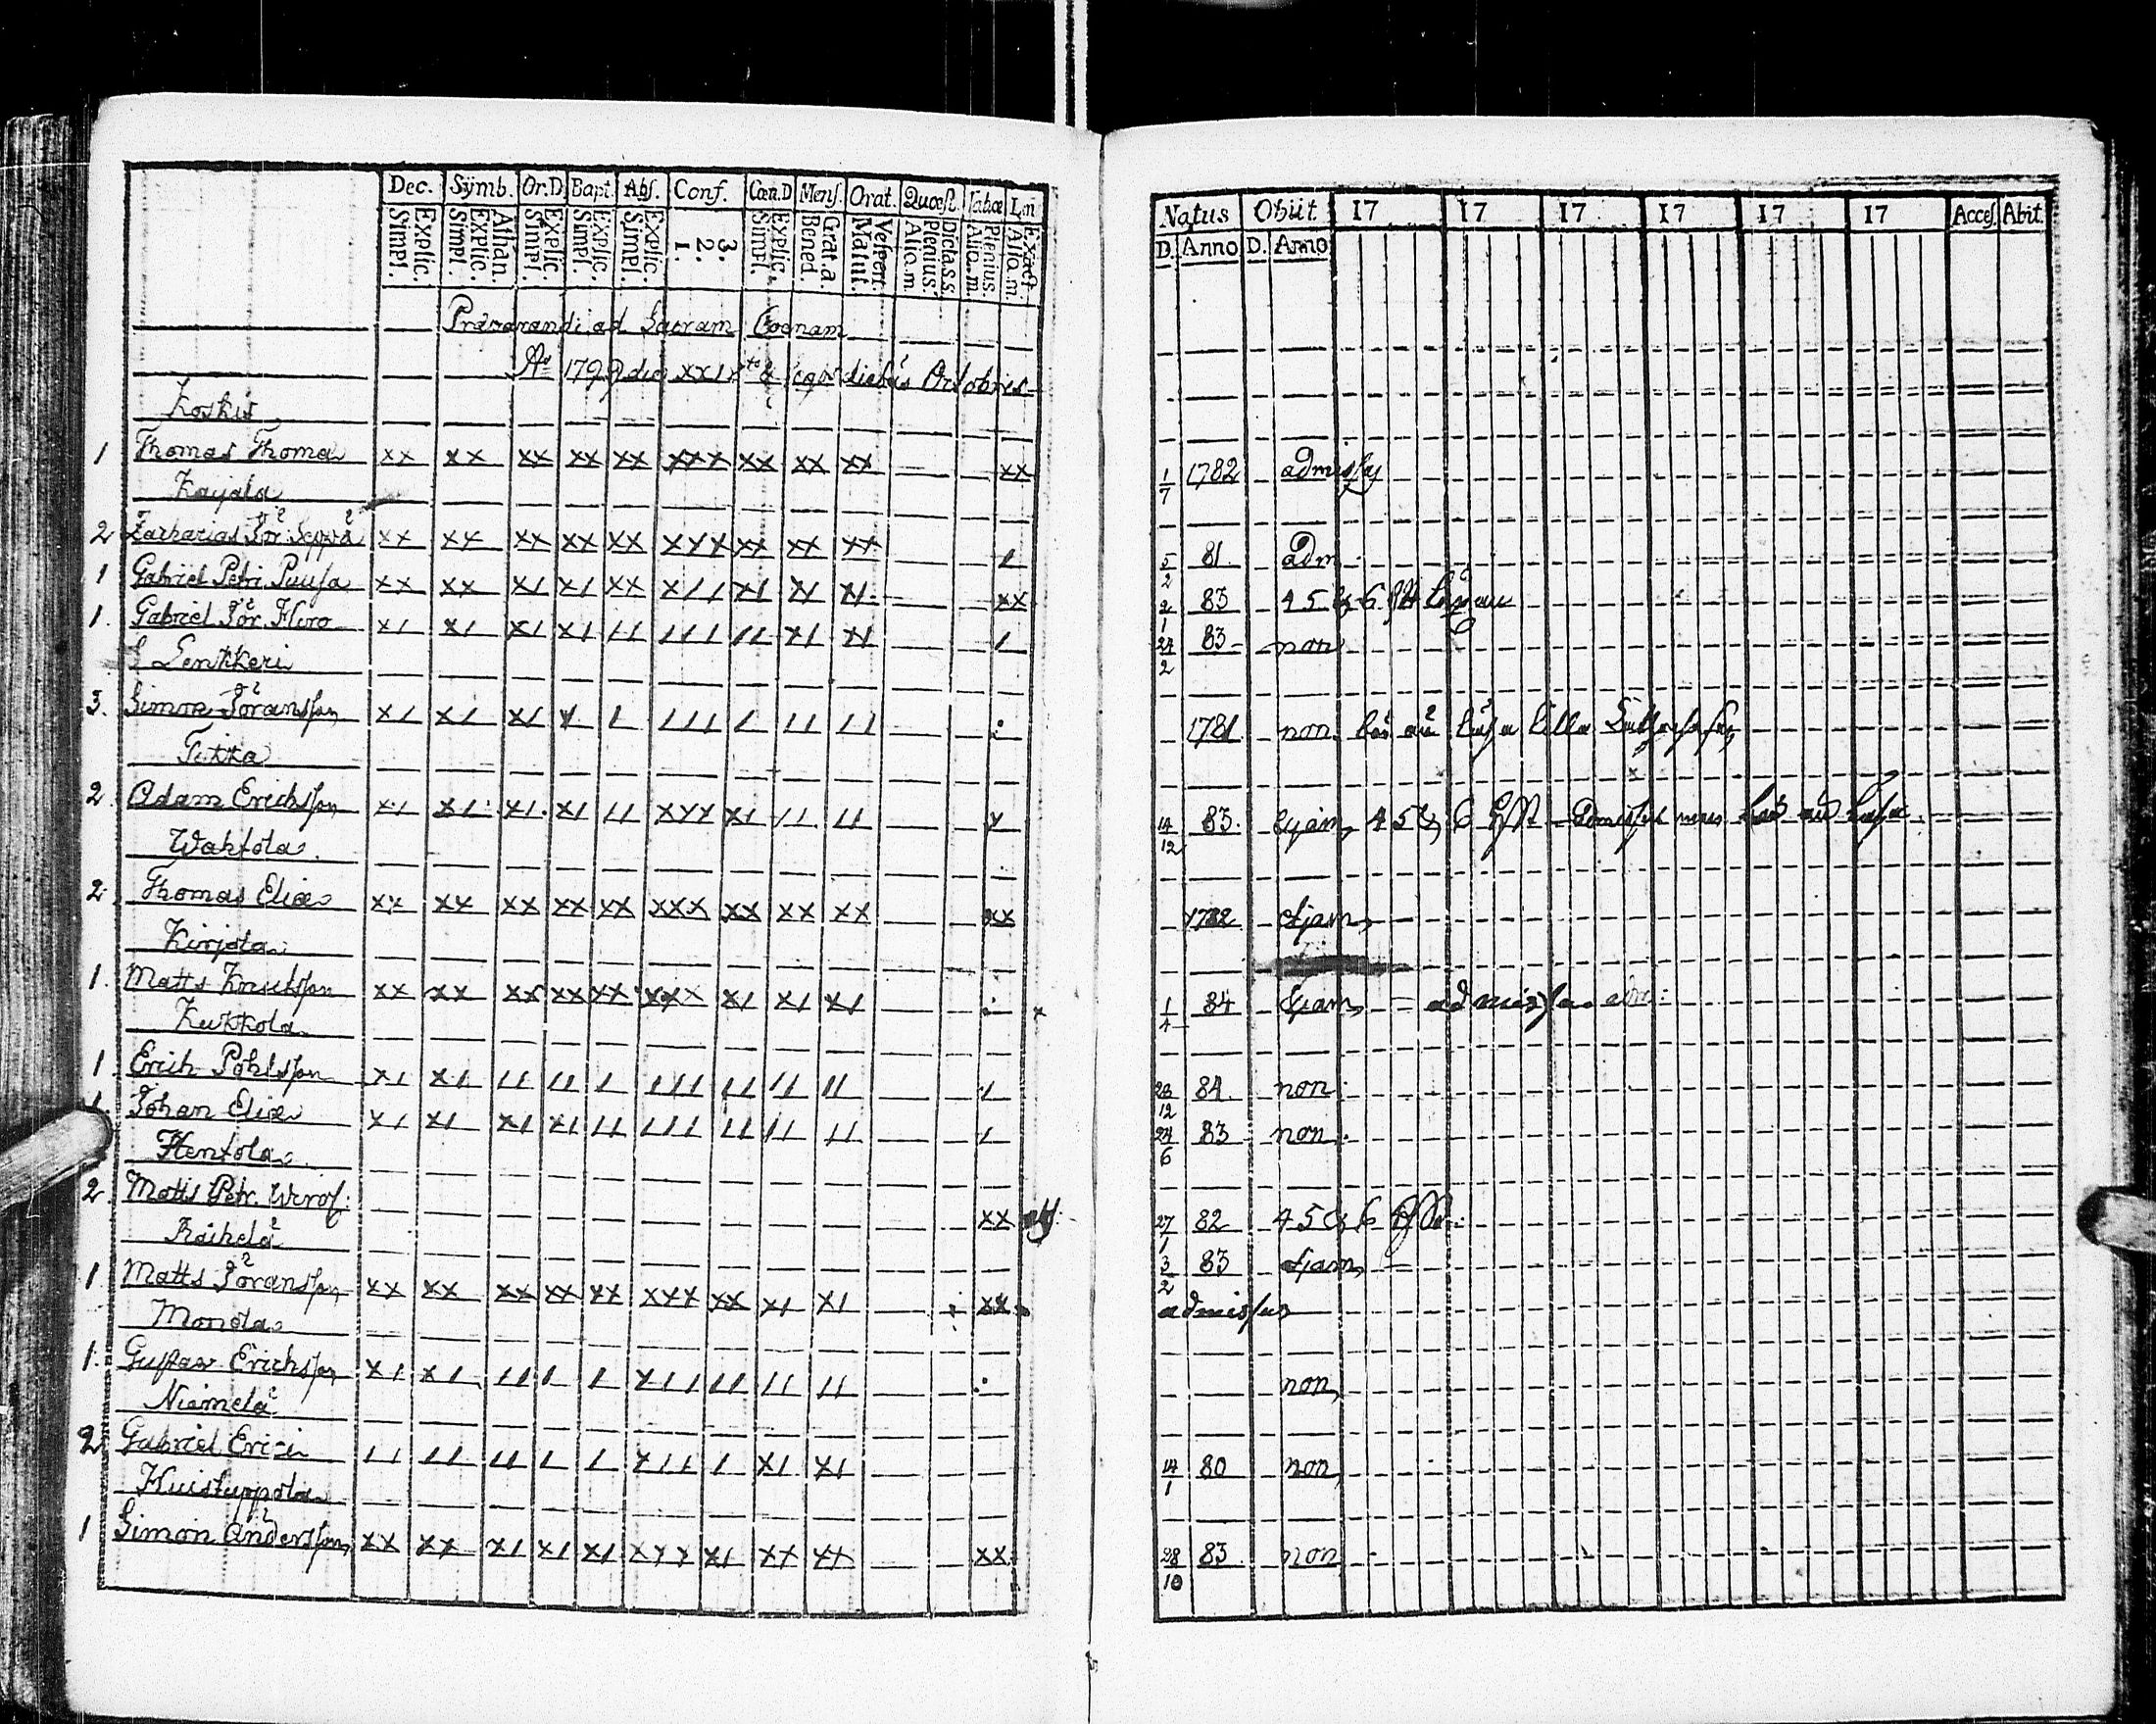 Dec. Sÿmb. Or.D. Bapt. Abſ. Conf. Cœn.D Menſ. Orat. Quœſt. Tabœ L.in
Explic. Simpl. Athan. Explic. Simpl. Explic. Simpl. Explic. Simpl. Explic. Simpl. 3. 2. 1. Explic. Simpl. Grat.a. Bened. Veſpert. Matut. Dicta.s.s. Plenius. Aliq.m. Plenius. Aliq.m. Exact Aliq.m.
Præparandi ad Sacram Coenam
Ao 1799 die XXIX & seqv diebus Octobris
Koskis
1 Thomas Thomæ xx xx xx xx xx xxx xx xx xx xx
Kayala
2 Zacharias Jör Seppä xx xx xx xx xx xxx xx xx xx 1
1 Gabriel Petri Puusa xx xx x1 x1 xx x11 x1 x1 x1 xx
1. Gabriel Jör. Flero x1 x1 x1 x1 11 111 11 x1 x1 1
Lenkkeri
3. Simon Jöransson x1 x1 x1 x 1 111 1 11 11
Tikka
2. Adam Erichsson x1 x1 x1 x1 11 xxx x1 11 11
Waktola
2. Thomas Eliæ xx xx xx xx xx xxx xx xx xx xx
Kirjola
1. Matts Knutsson xx xx xx xx xx xxx x1 x1 x1
Kukkola
1 Erich Pohlsson x1 x1 11 11 1 111 11 11 11 1
1. Johan Eliæ x1 x1 x1 x1 11 111 11 11 11 1
Hentola
2. Matts Petr. xx
Raikelä
1 Matts Jöransson xx xx xx xx xx xxx xx x1 x1 xx
Monola
1. Gustav Erichsson x1 x1 11 1 1 x11 11 11 11
Niemelä
2 Gabriel Erici 11 11 11 1 1 x11 1 x1 x1
Kuistuppola
1 Simon Andersson xx xx x1 x1 x1 xxx x1 xx xx xx
Natus Obiit 17 17 17 17 17 17 Acceſ. Abit.
D. Anno D. Anno
1/7 1782
5/2 81. Adm
2/1 83 4 5 & 6
24/2 83 non
1781. non.
14/12 83. 4 5 & 6
1782 Ejam
1/4 84 Ejam
28/12 84 non
24/6 83 non
27/1 82 4 5 & 6
3/2 83 Ejam
admissus
non
14/1 80 non
28/10 83 non